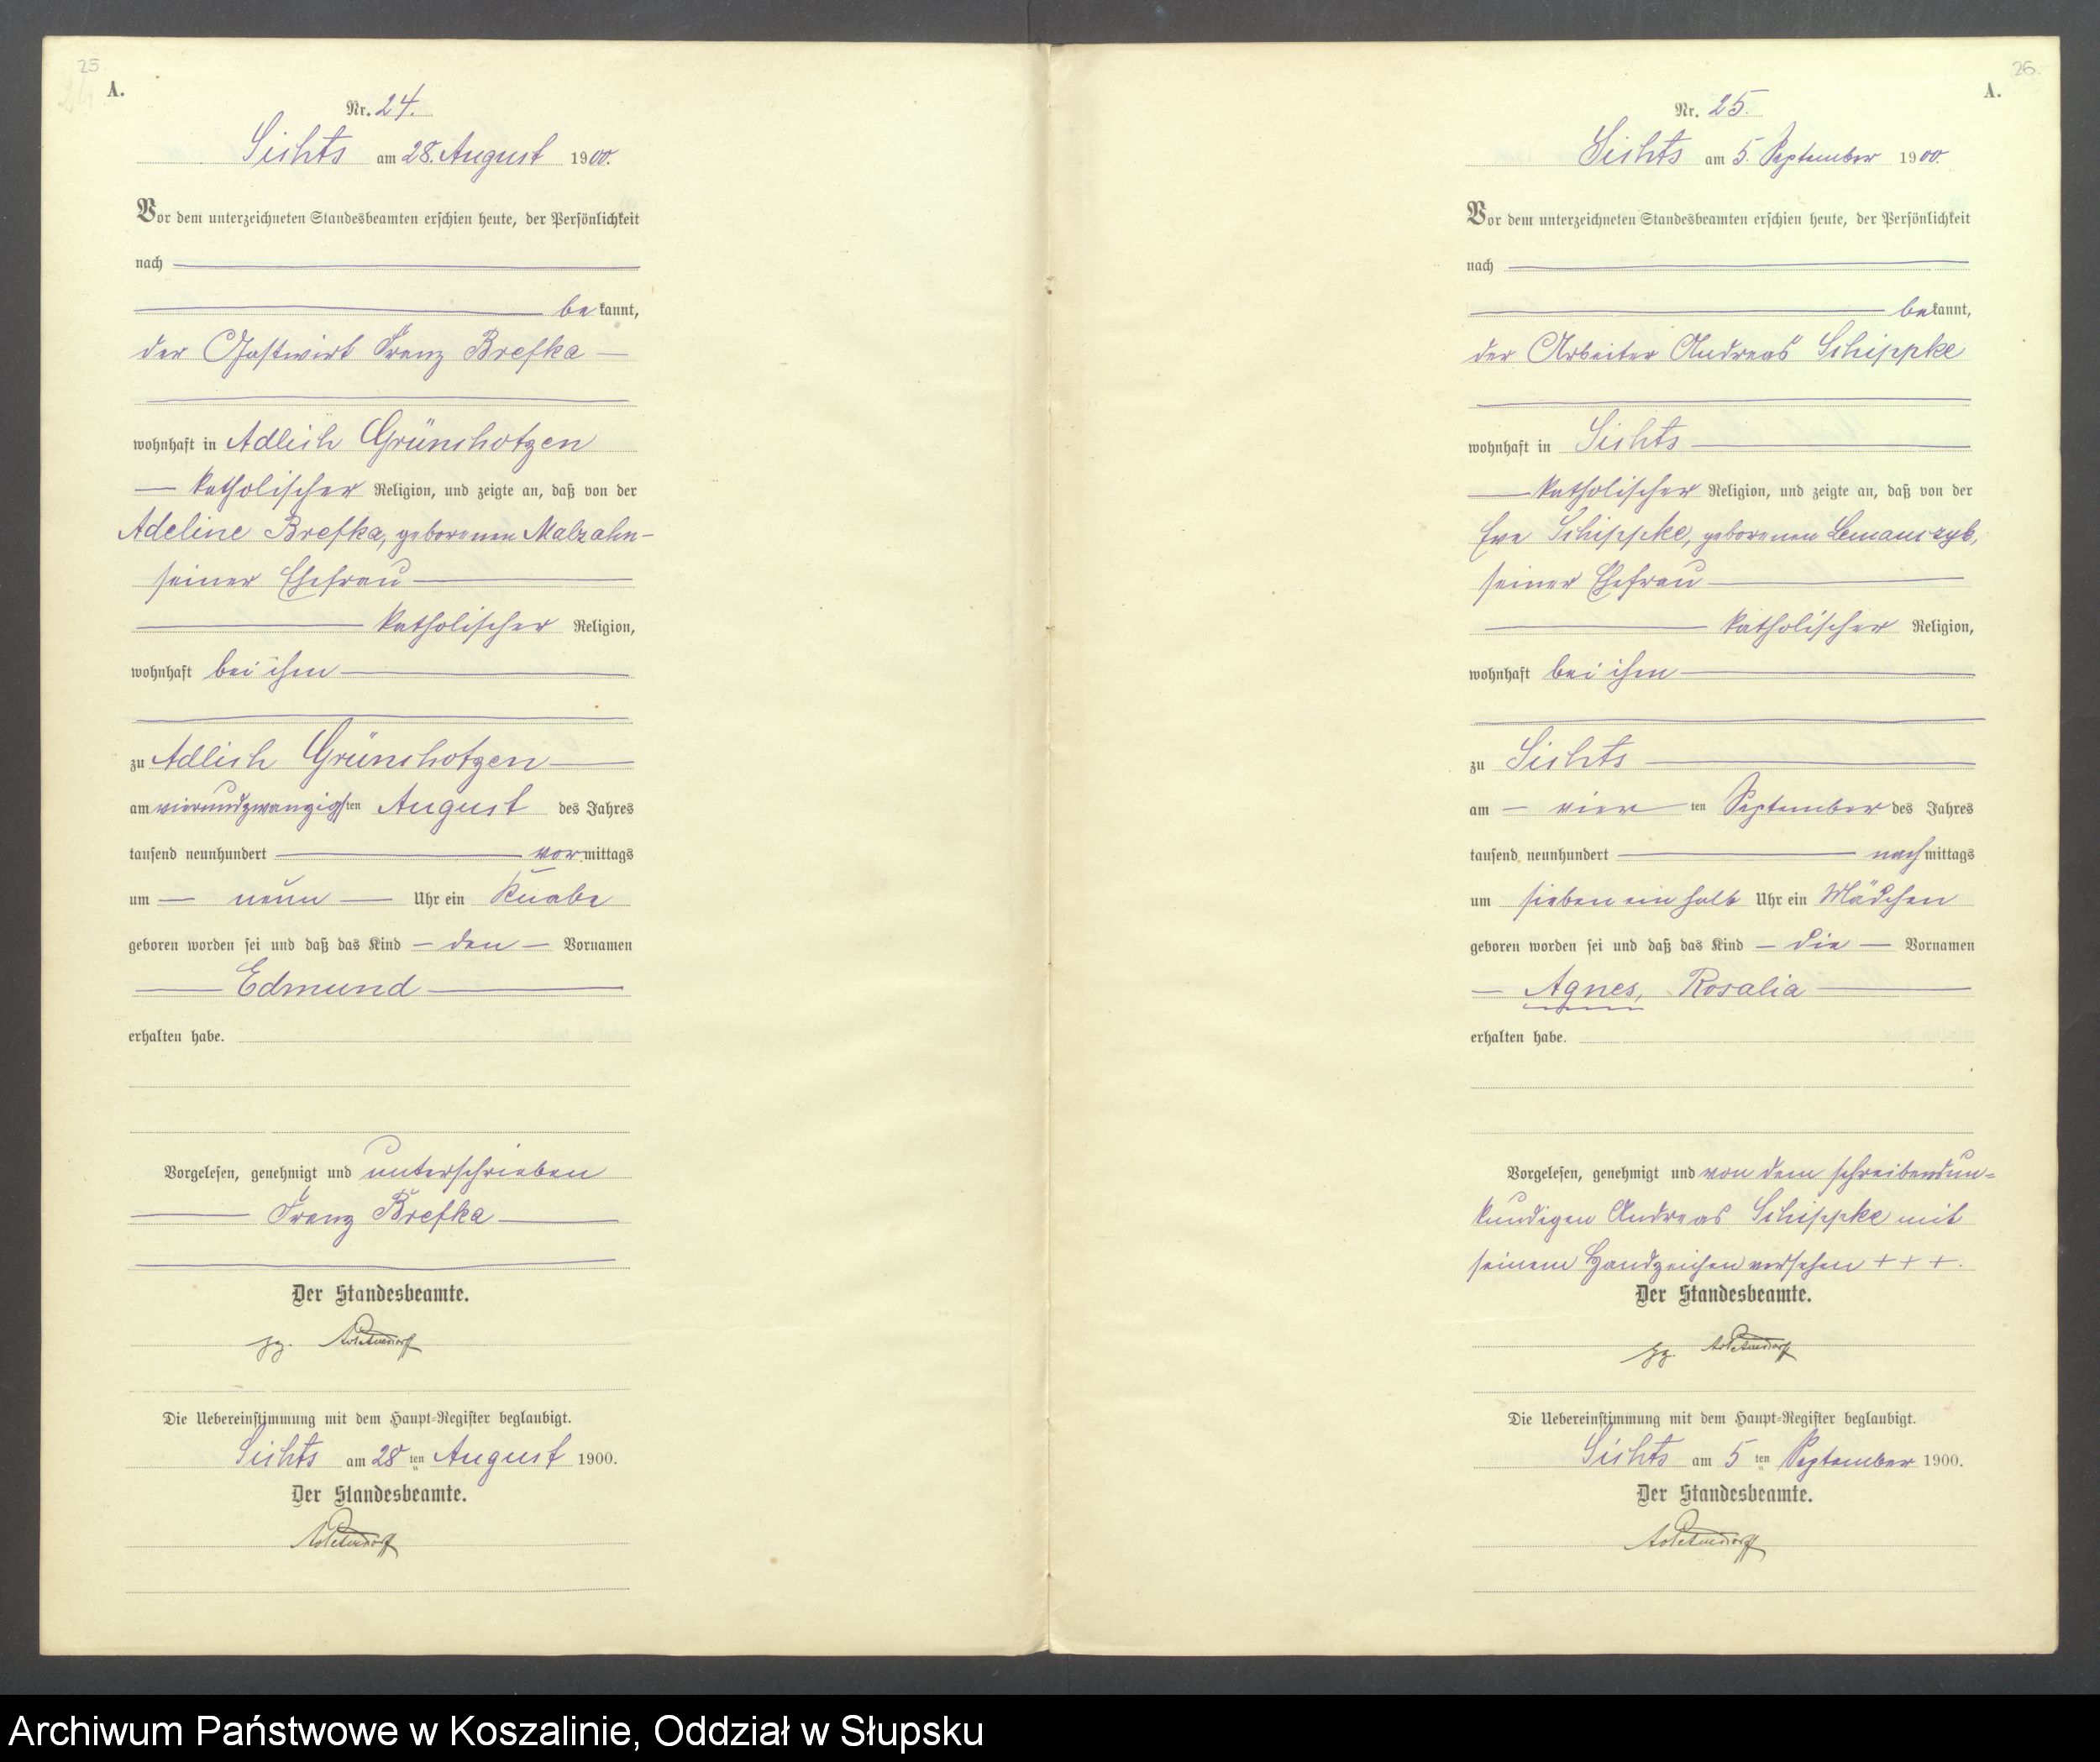 25.
A.
Nr. 24.
Lichts am 28. August 1900.
Vor dem unterzeichneten Standesbeamten erschien heute, der Persönlichkeit
nach
bekannt,
der Gastwirt Franz Brefka
wohnhaft in Adlich Grünchotzen
katholischer Religion, und zeigte an, daß von der
Adeline Brefka, geborenen Malzahn
seiner Ehefrau
katholischer Religion,
wohnhaft bei ihm
zu Adlich Grünchotzen
am vierundzwanzigsten August des Jahres
tausend neunhundert vormittags
um neun Uhr ein Knabe
geboren worden sei und daß das Kind den Vornamen
Edmund
erhalten habe.
Vorgelesen, genehmigt und unterschrieben
Franz Brefka
Der Standesbeamte.
gz.
Die Uebereinstimmung mit dem Haupt-Register beglaubigt.
Lichts am 28ten August 1900.
Der Standesbeamte.
26.
A.
Nr. 25.
Lichts am 5. September 1900.
Vor dem unterzeichneten Standesbeamten erschien heute, der Persönlichkeit
nach
bekannt,
der Arbeiter Andreas Schippke
wohnhaft in Lichts
katholischer Religion, und zeigte an, daß von der
Eva Schippke, geborenen Lemanczyk,
seiner Ehefrau
katholischer Religion,
wohnhaft bei ihm
zu Lichts
am vierten September des Jahres
tausend neunhundert nachmittags
um sieben ein halb Uhr ein Mädchen
geboren worden sei und daß das Kind die Vornamen
Agnes, Rosalia
erhalten habe.
Vorgelesen, genehmigt und von dem schreibensun=
kundigen Andreas Schippke mit
seinem Handzeichen versehen + + +.
Der Standesbeamte.
gz.
Die Uebereinstimmung mit dem Haupt-Register beglaubigt.
Lichts am 5ten September 1900.
Der Standesbeamte.
Archiwum Państwowe w Koszalinie, Oddział w Słupsku